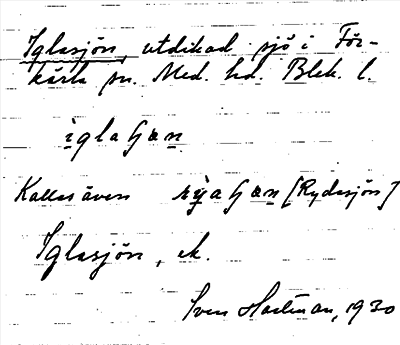 Iglasjön, utdikad sjö i För-
kärla sn. Med. hd. Blek. l.
iglaɧøn
Kallas även rÿaɧøn [Rydsjön]
Iglasjön, ek.
Sven Hartman, 1930